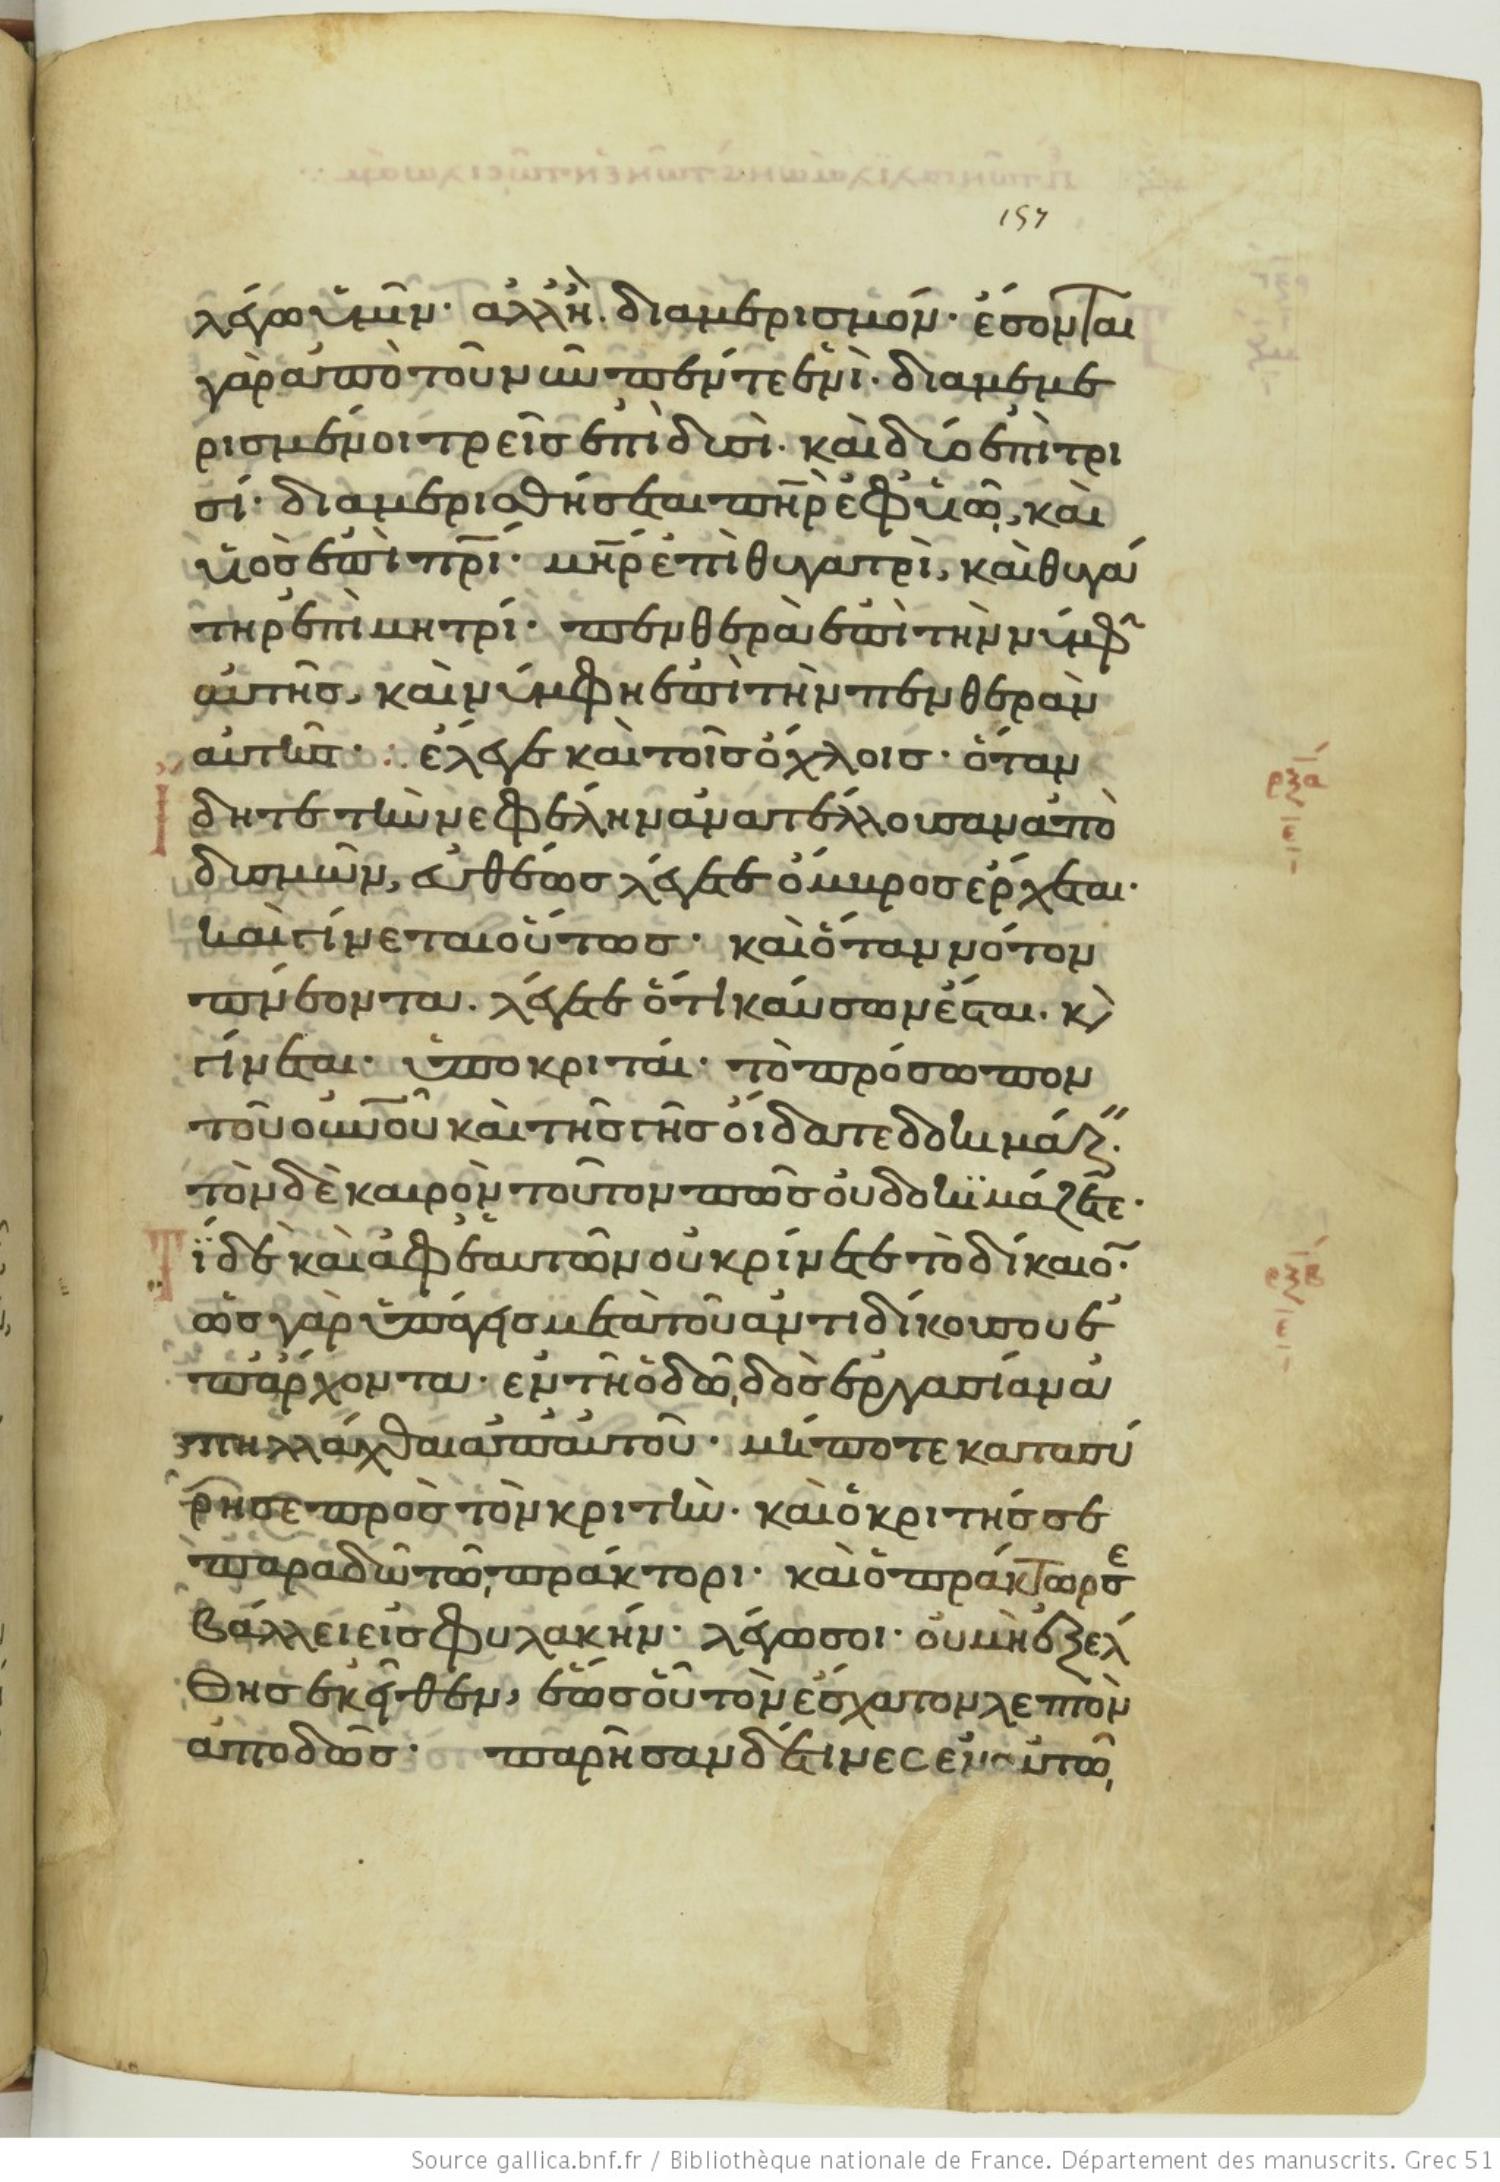 157
λέγω ὑμῖν· ἀλλ' ἢ διαμερισμόν· ἔσονται
γὰρ ἀπὸ τοῦ νῦν πέντε ἐν ἑνὶ· διαμεμε
ρισμένοι τρεῖς ἐπὶ δυσὶ· καὶ δύο ἐπὶ τρι
σί· διαμερισθήσεται πηρ ἐφ' υἱῷ, καὶ
υἱὸς ἐπὶ πρι· μηρ ἐπὶ θυγατρὶ, καὶ θυγά
τηρ ἐπὶ μητρί· πενθερὰ ἐπὶ τὴν νύμφ
αὐτῆς, καὶ νύμφη ἐπὶ τὴν πενθερὰν
αὐτῆς· ἔλεγε καὶ τοῖς ὄχλοις· ὅταν
ἴ
δητε τὴν νεφέλην ἀνατέλλουσαν ἀπὸ
ρξα
δυσμῶν, εὐθέως λέγετε ὄμβρος ἔρχεται·
ε
καὶ γίνεται οὕτως· καὶ ὅταν νότον
πνέοντα· λέγετε ὅτι καύσων ἔσται· κ
γίνεται· ὑποκριταί· τὸ πρόσωπον
τοῦ οὐνοῦ καὶ τῆς γῆς οἴδατε δοκιμάζ·
τὸν δὲ καιρὸν τοῦτον πῶς οὐ δοκιμάζετε·
Τ
ί δὲ καὶ ἀφ' ἑαυτῶν οὐ κρίνετε τὸ δίκαιο·
ρξβ
ὡς γὰρ ὑπάγεις μετὰ τοῦ ἀντιδίκου σου ἐ
ε
π' ἄρχοντα· ἐν τῇ ὁδῷ, δὸς ἐργασίαν ἀ
πηλλάχθαι ἀπ' αὐτοῦ· μήποτε κατασύ
ρῃ σε πρὸς τὸν κριτὴν· καὶ ὁ κριτής σε
παραδῶ τῷ πράκτορι· καὶ ὁ πράκτωρ σε
βάλλει εἰς φυλακήν· λέγω σοι· οὐ μὴ ἐξέλ
θῃς ἐκεῖθεν, ἕως οὗ τὸν ἔσχατον λεπτὸν
ἀποδῷς· παρῆσαν δέ τινες ἐν αὐτῷ
Source gallica.bnf.fr / Bibliothèque nationale de France. Département des manuscrits. Grec 51